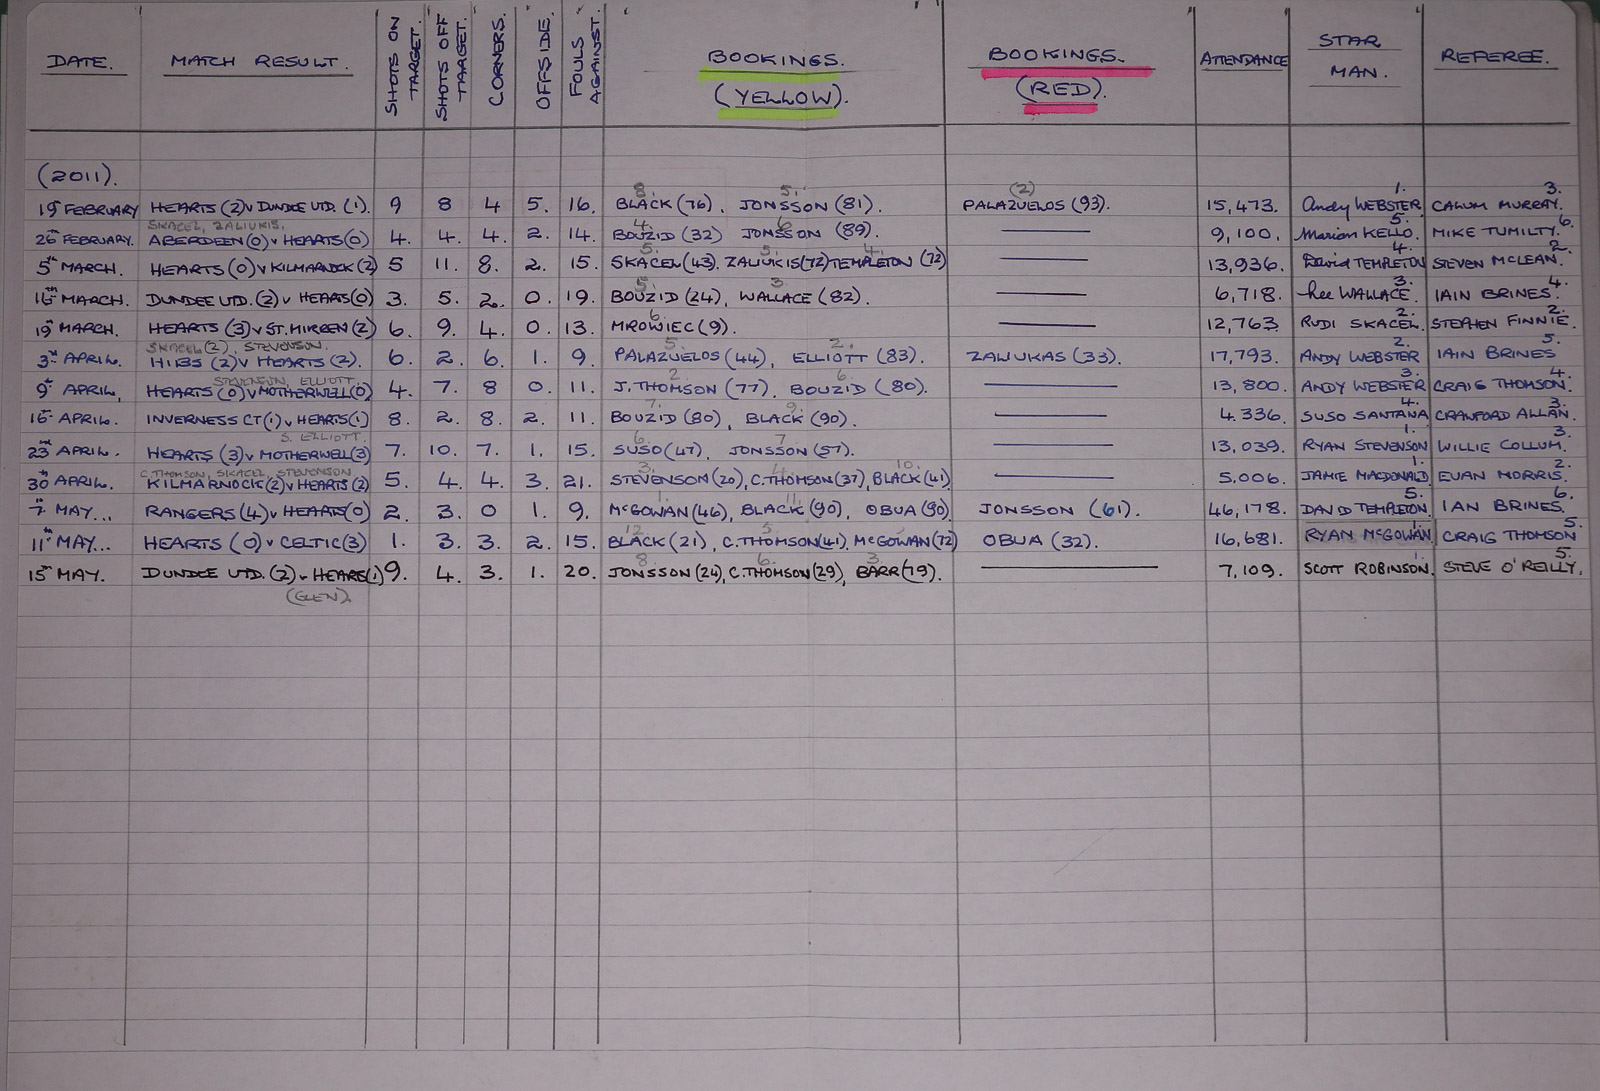 DATE. MATCH RESULT. SHOTS ON TARGET. SHOTS OFF TARGET. CORNERS. OFFSIDE. FOULS AGAINST. BOOKINGS. (YELLOW). BOOKINGS. (RED). ATTENDANCE STAR MAN. REFEREE.
(2011).
8. 5. (2) 1. 3.
19 FEBRUARY HEARTS (2) v DUNDEE UTD. (1). 9 8 4 5. 16. BLACK (76). JONSSON (81). PALAZUELOS (93). 15,473. Andy WEBSTER. CALUM MURRAY.
SKACEL, ZALIUKIS. 4. 6 5. 6.
26TH FEBRUARY. ABERDEEN (0) v HEARTS (0) 4. 4. 4. 2. 14. BOUZID (32) JONSSON (89). 9,100. Marian KELLO. MIKE TUMILTY.
5. 5. 4. 4. 2.
5TH MARCH. HEARTS (0) v KILMARNOCK (2) 5 11. 8. 2. 15. SKACEL (43). ZALIUKIS (72) TEMPLETON (72) 13,936. David TEMPLETON STEVEN MCLEAN.
5 3 3. 4.
MARCH. DUNDEE UTD. (2) v HEARTS (0) 3. 5. 2. 0. 19. BOUZID (24), WALLACE (82). 6,718. Lee WALLACE. IAIN BRINES.
6. 2. 2.
19TH MARCH. HEARTS (3) v ST. MIRREN (2) 6. 9. 4. 0. 13. MROWIEC (9). 12,763. RUDI SKACEL. STEPHEN FINNIE.
SKACEL (2), STEVENSON. 5. 2. 2. 5.
3RD APRIL. HIBS (2) v HEARTS (2). 6. 2. 6. 1. 9. PALAZUELOS (44), ELLIOTT (83). ZALIUKAS (33). 17,793. ANDY WEBSTER IAIN BRINES
STEVENSON, ELLIOTT. 2. 6. 3. 4.
9TH APRIL, HEARTS (0) v MOTHERWELL (0) 4. 7. 8 0. 11. J. THOMSON (77), BOUZID (80). 13,800. ANDY WEBSTER CRAIG THOMSON.
7. 9. 4. 3.
16TH APRIL. INVERNESS CT (1) v HEARTS (1) 8. 2. 8. 2. 11. BOUZID (80), BLACK (90). 4.336. SUSO SANTANA CRAWFORD ALLAN.
S. ELLIOTT. 6. 7 1. 3.
23RD APRIL. HEARTS (3) v MOTHERWELL (3) 7. 10. 7. 1. 15. SUSO (47), JONSSON (57). 13,039. RYAN STEVENSON WILLIE COLLUM.
C. THOMSON, SKACEL, STEVENSON 3. 4. 10. 1. 2.
30TH APRIL. KILMARNOCK (2) v HEARTS (2) 5. 4. 4. 3. 21. STEVENSON (20), C. THOMSON (37), BLACK (41) 5,006. JAMIE MACDONALD EUAN NORRIS.
1. 11. 5. 6.
7TH MAY... RANGERS (4) v HEARTS (0) 2. 3. 0 1. 9. MCGOWAN (46), BLACK (90), OBUA (90). JONSSON (61). 46,178. DAVID TEMPLETON. IAN BRINES.
12 5. 1. 5.
11TH MAY... HEARTS (0) v CELTIC (3) 1. 3. 3. 2. 15. BLACK (21), C. THOMSON (41), MCGOWAN (72) OBUA (32). 16,681. RYAN MCGOWAN CRAIG THOMSON
8 6. 3 1. 5.
15TH MAY. DUNDEE UTD. (2) v HEARTS (1) 9. 4. 3. 1. 20. JONSSON (24), C. THOMSON (29), BARR (79). 7,109. SCOTT ROBINSON. STEVE O'REILLY.
(GLEN).